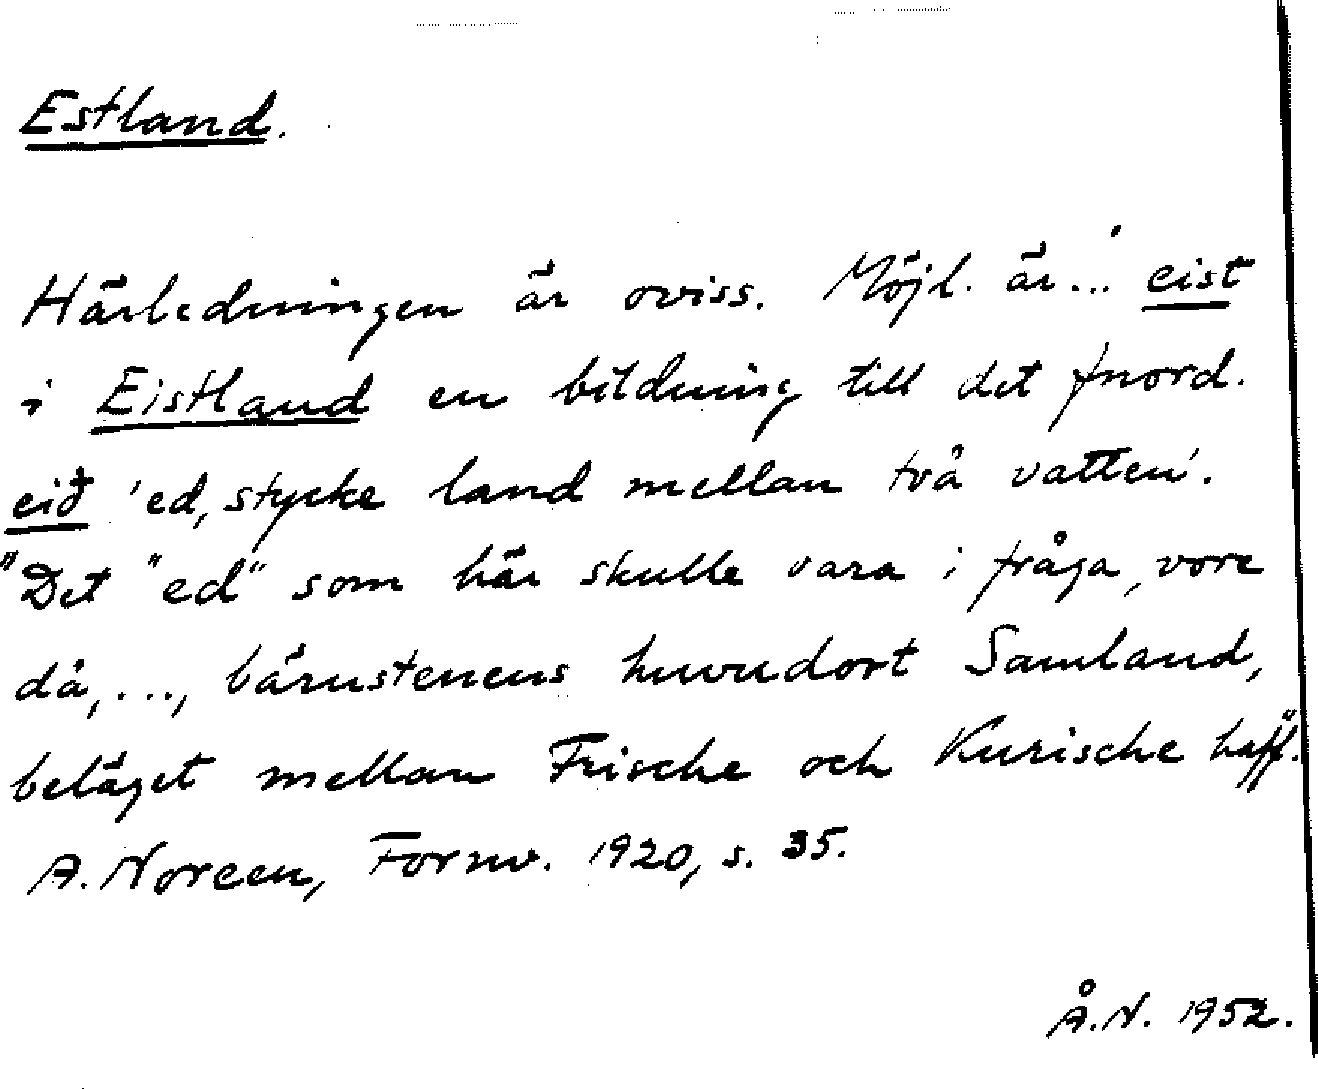 Estland.
Härledningen är oviss. Möjl. är... eist
i Eistland en bildning till det fnord.
eið 'ed, stycke land mellan två vatten'.
"Det "ed" som här skulle vara i fråga, vore
då, ..., bärnstenens huvudort Samland,
beläget mellan Frische och Kurische haff."
A. Noreen, Fornv. 1920, s. 35.
Å.N. 1952.